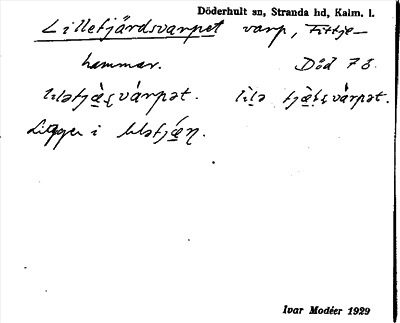 Döderhult sn, Stranda hd, Kalm. l.
Lillefjärdsvarpet varp, Fittje-
hammar. Död 78.
lıləfjæ̀ṣvárpət. lìlə fjæ̀ṭṣvárpət.
Ligger i lıləfjǽṇ.
Ivar Modéer 1929